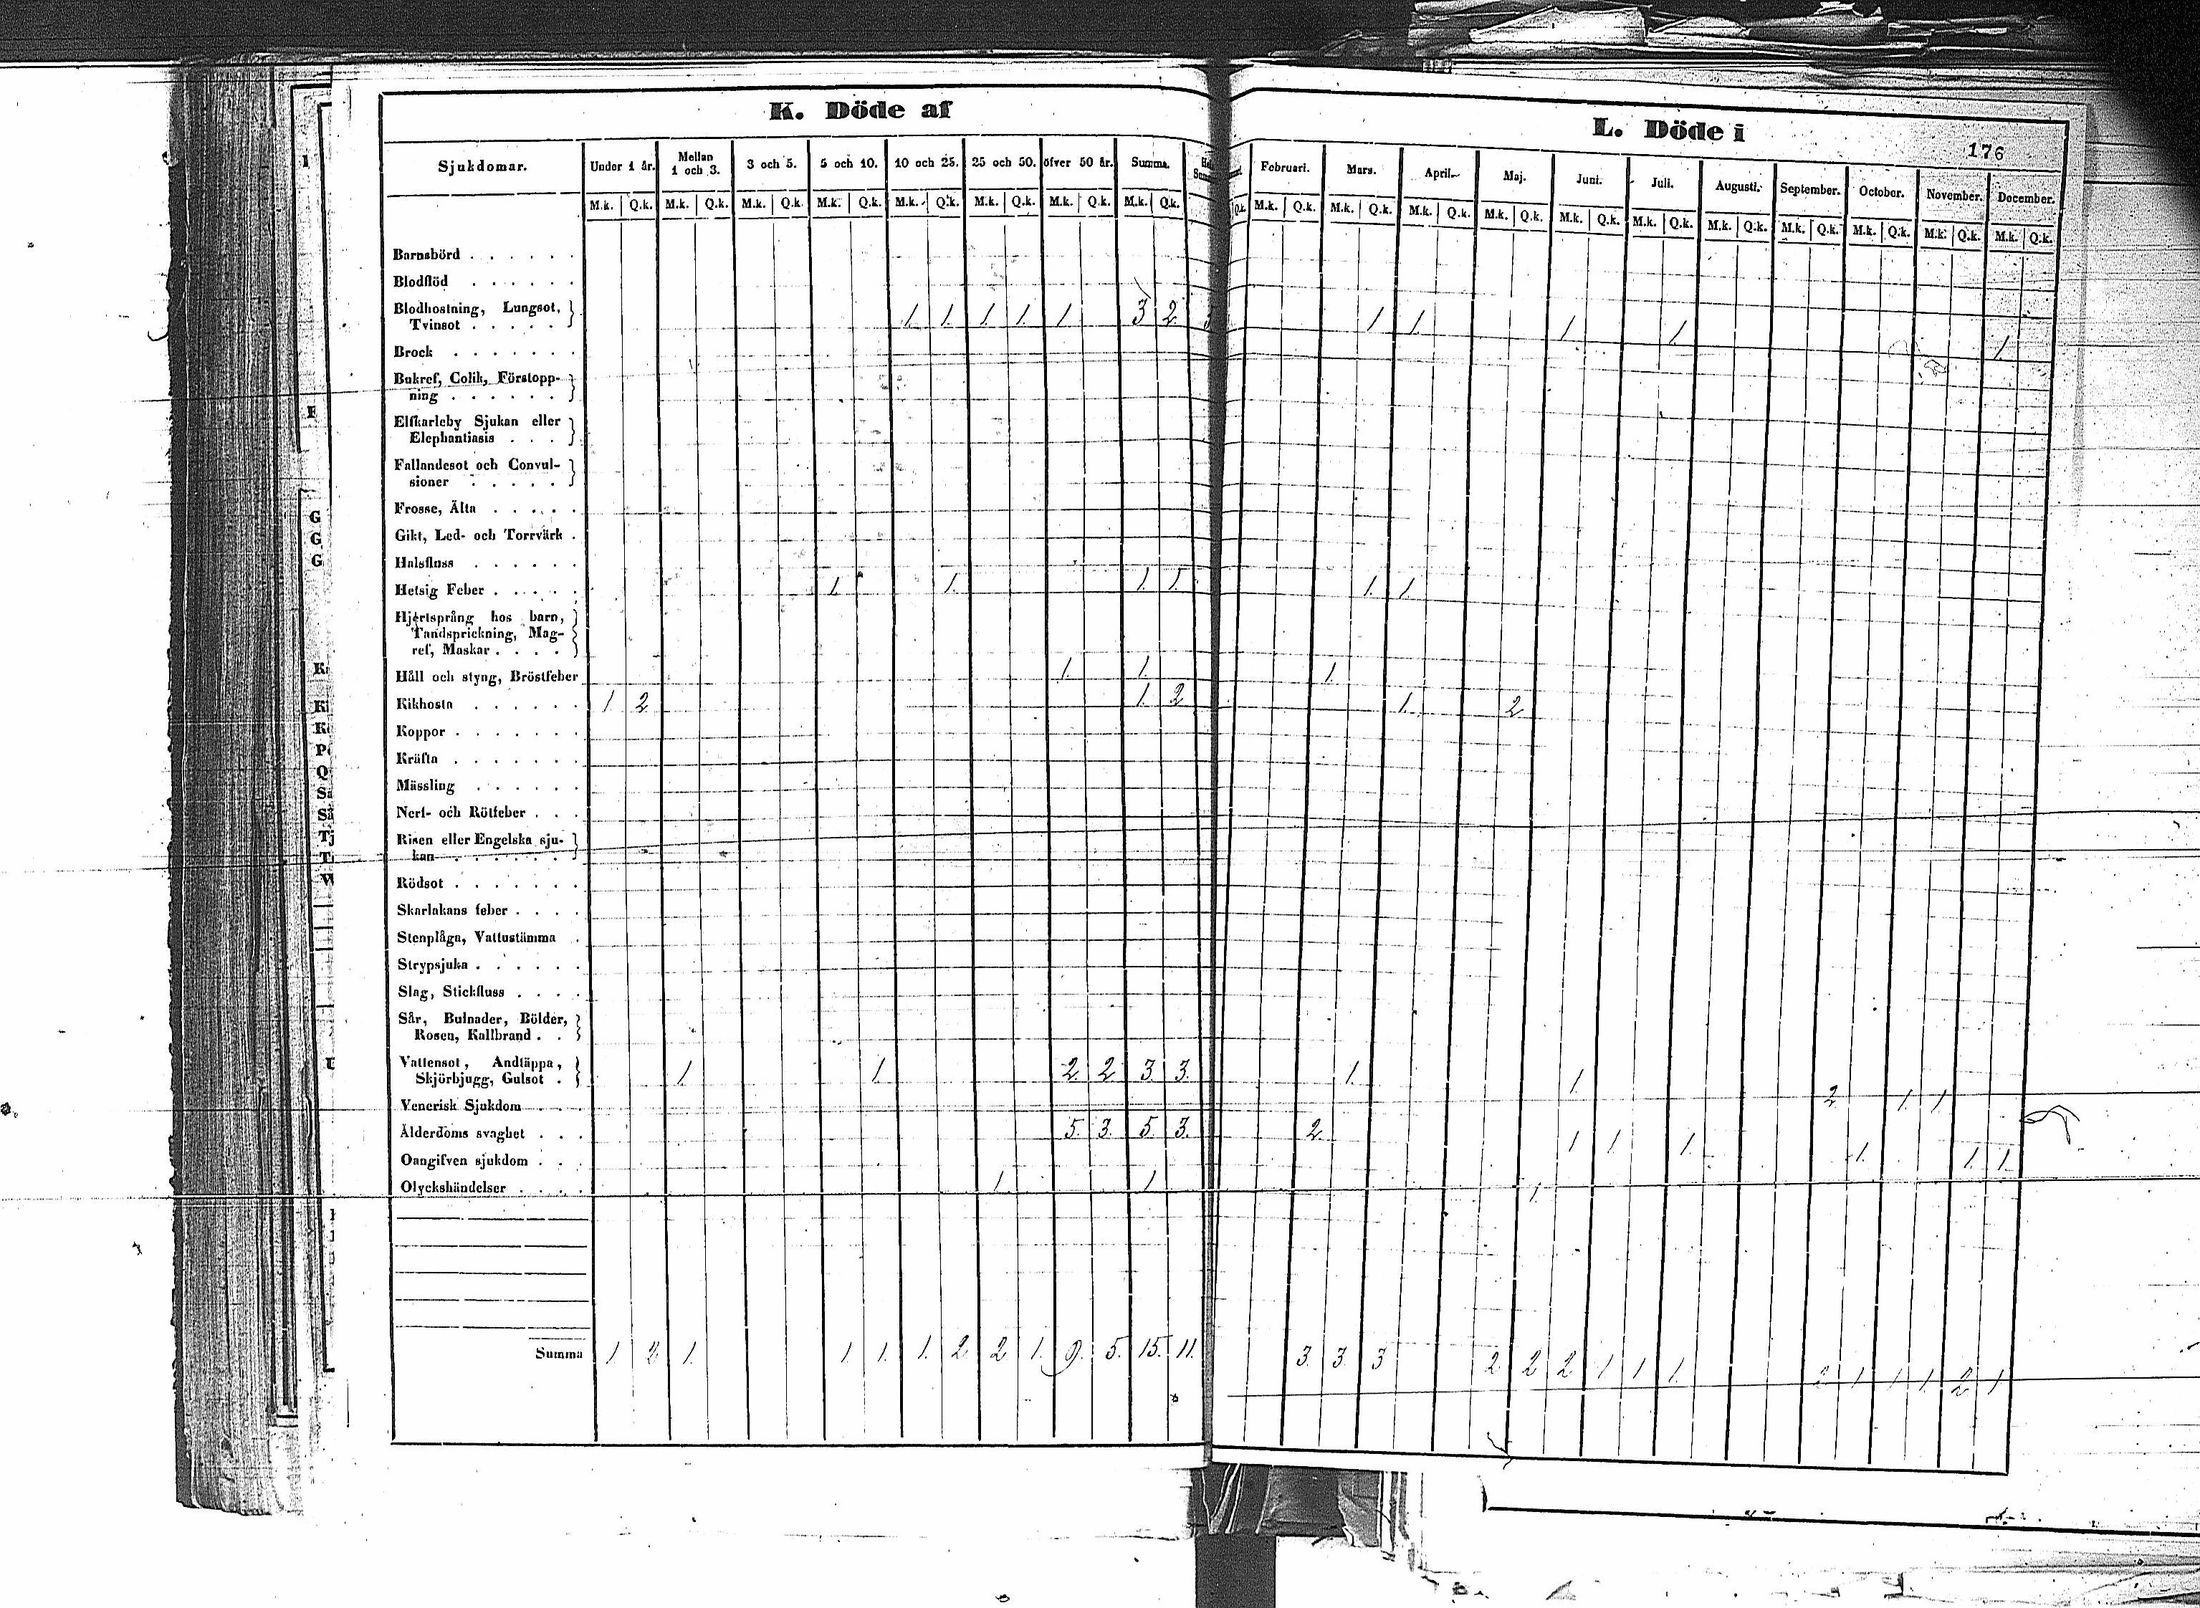 K. Döde af
L. Döde i
176
Sjukdomar. Under 1 år. Mellan 1 och 3. 3 och 5. 5 och 10. 10 och 25. 25 och 50. öfver 50 år. Summa. Februari. Mars. April. Maj. Juni. Juli. Augusti. September. October. November. December.
M.k. Q.k. M.k. Q.k. M.k. Q.k. M.k. Q.k. M.k. Q.k. M.k. Q.k. M.k. Q.k. M.k. Q.k. Q.k. M.k. Q.k. M.k. Q.k. M.k. Q.k. M.k. Q.k. M.k. Q.k. M.k. Q.k. M.k. Q.k. M.k. Q.k. M.k. Q.k. M.k. Q.k. M.k. Q.k.
Barnsbörd . . . . . .
Blodflöd . . . . . .
Blodhostning, Lungsot,
Tvinsot . . . . . 1. 1. 1. 1. 1. 3 2 1 1. 1. 1. 1.
Brock . . . . . . .
Bukref, Colik, Förstopp-
ning . . . . . .
Elfkarleby Sjukan eller
Elephantiasis . . .
Fallandesot och Convul-
sioner . . . . .
Frosse, Älta . . . . .
Gikt, Led- och Torrvärk .
Halsfluss . . . . . .
Hetsig Feber . . . . . 1. 1. 1. 1. 1. 1.
Hjertsprång hos barn,
Tandsprickning, Mag-
ref, Maskar . . . .
Håll och styng, Bröstfeber 1. 1. 1.
Kikhosta . . . . . . 1 2 1. 2 1. 2
Koppor . . . . . . .
Kräfta . . . . . . .
Mässling . . . . . .
Nerf- och Rötfeber . . .
Risen eller Engelska sju-
kan . . . . . . .
Rödsot . . . . . . .
Skarlakans feber . . . .
Stenplåga, Vattustämma .
Strypsjuka . . . . . .
Slag, Stickfluss . . . .
Sår, Bulnader, Bölder,
Rosen, Kallbrand . .
Vattensot, Andtäppa,
Skjörbjugg, Gulsot . 1. 1. 2. 2 3. 3. 1. 1. 2 1. 1.
Venerisk Sjukdom . . .
Ålderdoms svaghet . . . 5. 3. 5. 3. 2. 1 1. 1. 1. 1. 1.
Oangifven sjukdom . . .
Olyckshändelser . . . . 1. 1. 1.
Summa 1. 2 1. 1. 1. 1. 2 2 1. 9. 5. 15. 11. 3. 3. 3 2 2 2 1 1 1. 2 1 1 1 2 1